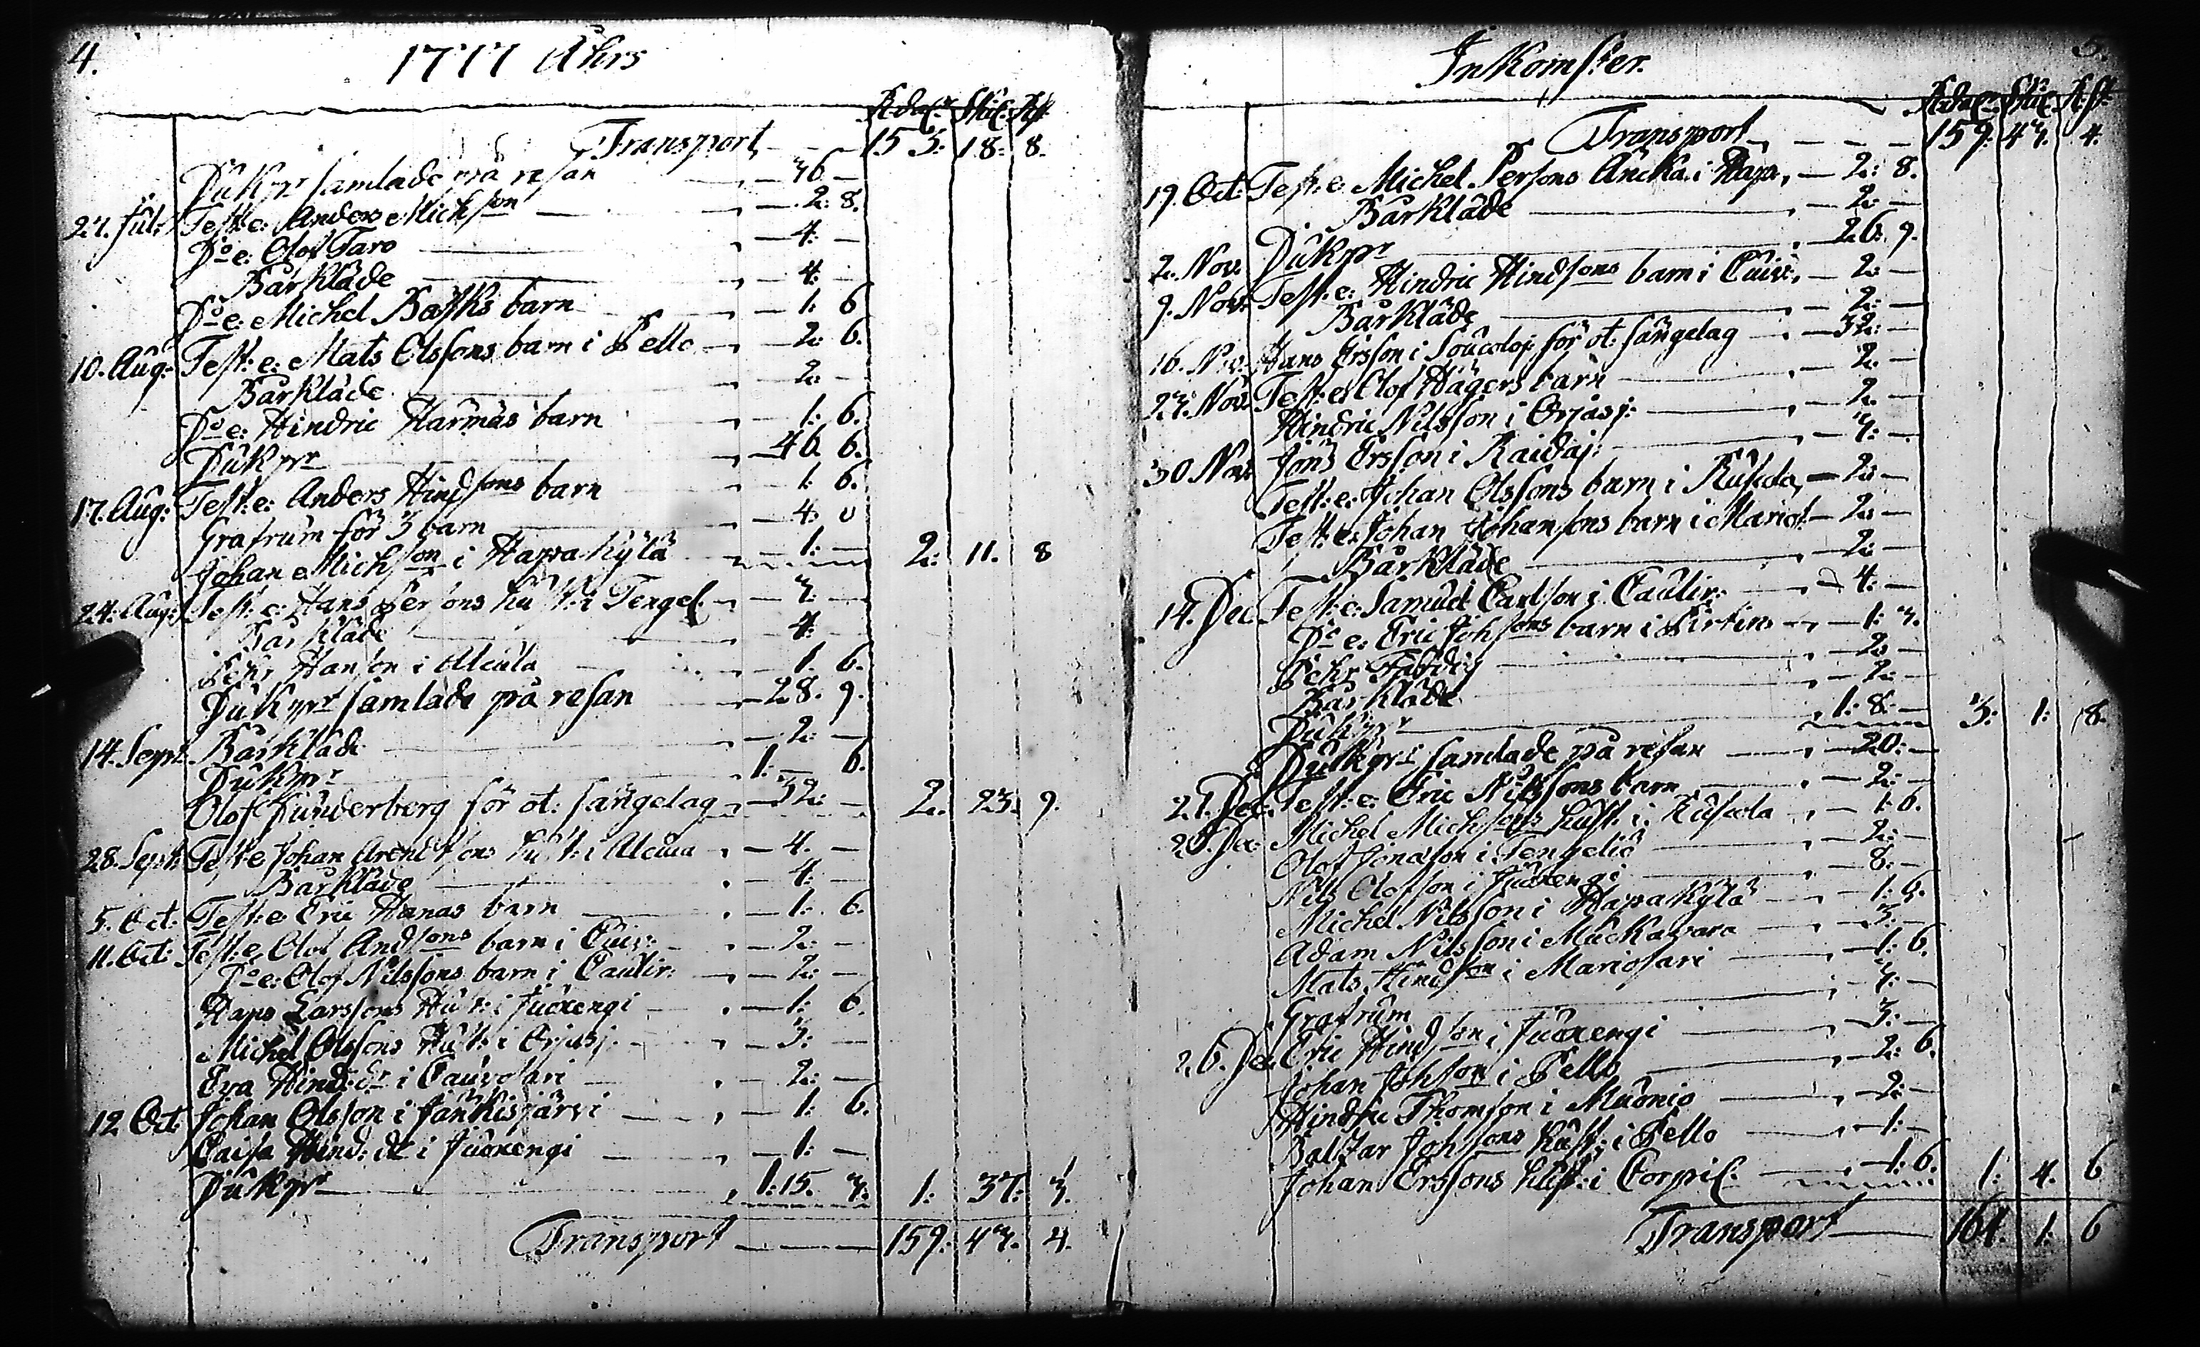 4.
1777 Åhrs
R:dal:r Skil: R:st:
Transport 153: 18: 8.
Pukpr samlade på resan 36 —
27. Jul: Test: e: Anders Michson 2: 8.
Do e: Olof Taro 4: —
Bårkläde 4: —
Do e: Michel Basks barn 1: 6
10. Aug: Test: e: Mats Olssons barn i Pello 2: 6.
Bårkläde 2: —
Do e: Hindric Harmas barn 1: 6.
Pukpr 46. 6.
17. Aug: Test: e: Anders Hindsons barn 1: 6.
Grafrum för 3 barn 4: 0
Johan Michson i Haapakylä 1: — 2: 11. 8
24. Aug: Test: e: Hans Persons hust: i Tengel: 3: —
Bårkläde 4: —
Pehr Hanson i Alcula 1: 6.
Pukpr samlade på resan 28. 9.
14. Sept: Bårkläde 2: —
Pukpr 1: — 6.
Olof Sunderberg för ot: sängelag 32: — 2: 23: 9.
28. Sept: Test: e: Johan Arendtsons hust: i Alcula 4. —
Bårkläde 4: —
5. Oct: Test: e: Eric Hanas barn 1: 6.
11. Oct: Test: e: Olof Andsons barn i Cuiv: 2: —
Do e: Olof Nilssons barn i Caulir: 2: —
Hans Larssons Hust: i Juoxengi 1: 6.
Michel Olssons Hust: i Orjasj: 3: —
Eva Hind: dr i Cauvosari 2: —
12 Oct: Johan Olsson i Jänkisjärvi 1: 6.
Caisa Hind: dr i Juoxengi 1: —
Pukpr 1: 15. 3. 1: 37: 3.
Transport 159: 43. 4.
5.
Inkomster.
R:dal:r Skil: R:st:
Transport 159: 43. 4.
19. Oct: Test: e: Michel Persons Äncka i Haapa, 2: 8.
Bårkläde 2: —
2. Nov: Pukpr 26: 9.
9. Nov: Test: e: Hindric Hindsons barn i Cuiv: 2: —
Bårkläde 2: —
16. Nov: Hans Ersson i Soucoloj för ot: sängelag 32: —
23. Nov: Test: e: Olof Hägers barn 2: —
Hindric Nilsson i Orjasj: 2. —
30 Nov: Jöns Ersson i Raidaj: 3: —
Test: e: Johan Olssons barn i Ruscola, 2: —
Test: e: Johan Johansons barn i Marios: 2: —
Bårkläde 2: —
14. Dec: Test: e: Samuel Carlson i Caulir: 4: —
Do e: Eric Johsons barn i Pirtin: 1: 3.
Pehr 2: —
Bårkläde 2: —
Pukpr 1: 8: — 3: 1: 8.
Pukpr samlade på resan 20: —
21. Dec: Test: e: Eric Nilssons barn 2: —
Michel Michsons hust: i Ruscola 1: 6.
Olof Jonasson i Tengeliö 2: —
Nils Olofson i Juoxengi 8: —
Michel Nilsson i Haapakylä 1: 6.
Adam Nilsson i Muckavara 3: —
Mats Hindson i Mariosari 1: 6.
Grafrum 3: —
26. Dec: Eric Hindson i Juoxengi 3: —
Johan Johson i Pello 2: 6.
Hindric Thomson i Muonio 2: —
Baltzar Johsons hust: i Pello 1: —
Johan Erssons hust: i Corpil: 1: 6. 1: 4. 6
Transport 164. 1: 6